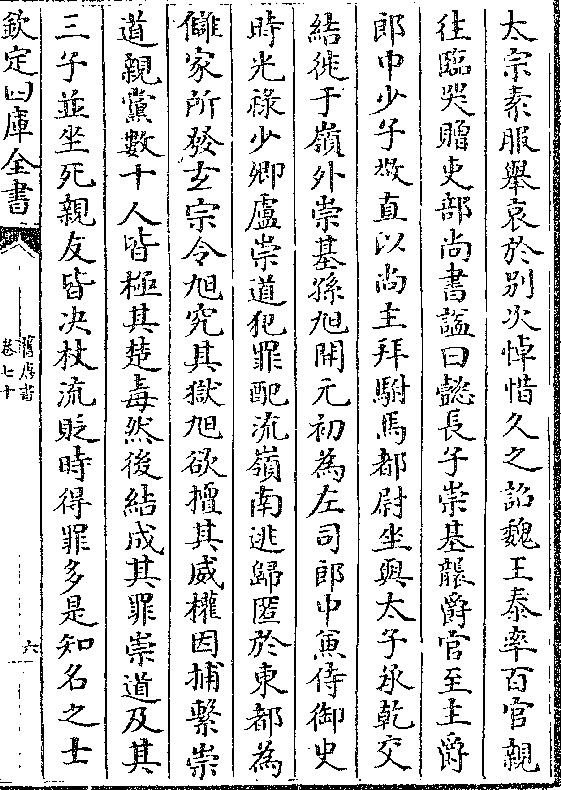 太宗素服舉哀於别次悼惜久之詔魏王泰率百官親
往臨哭贈吏部尚書諡曰懿長子崇基襲爵官至主爵
郎中少子敬直以尚主拜駙馬都尉坐與太子承乾交
結徙于嶺外崇基孫旭開元初為左司郎中兼侍御史
時光祿少卿盧崇道犯罪配流嶺南逃歸匿於東都為
讎家所發玄宗令旭究其獄旭欲擅其威權因捕繫崇
道親黨數十人皆極其楚毒然後結成其罪崇道及其
三子並坐死親友皆决杖流貶時得罪多是知名之士
欽定四庫全書
舊唐書
卷七十
六